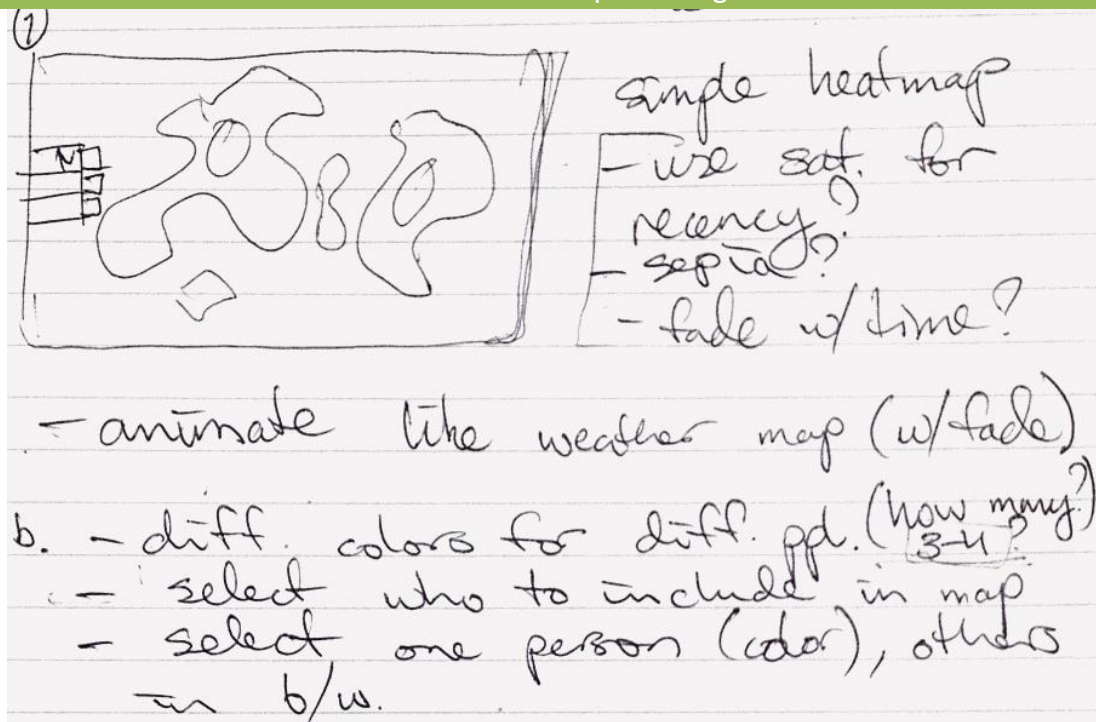 1
simple heatmap
- use sat. for
recency?
- sepia?
- fade w/ time?
- animate like weather map (w/fade)
b. - diff. colors for diff. ppl. (how many?)
3-4?
- select who to include in map
- select one person (color), others
in b/w.